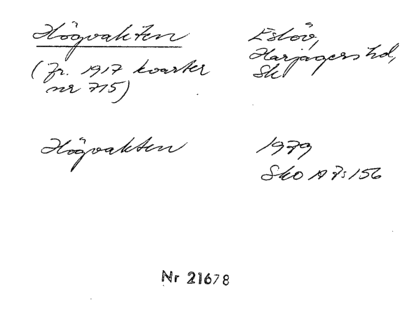 Högvakten Eslöv,
(fr. 1917 kvarter Harjagers hd,
nr 715) Sk
Högvakten 1979
Sko A 7:156
Nr 21678